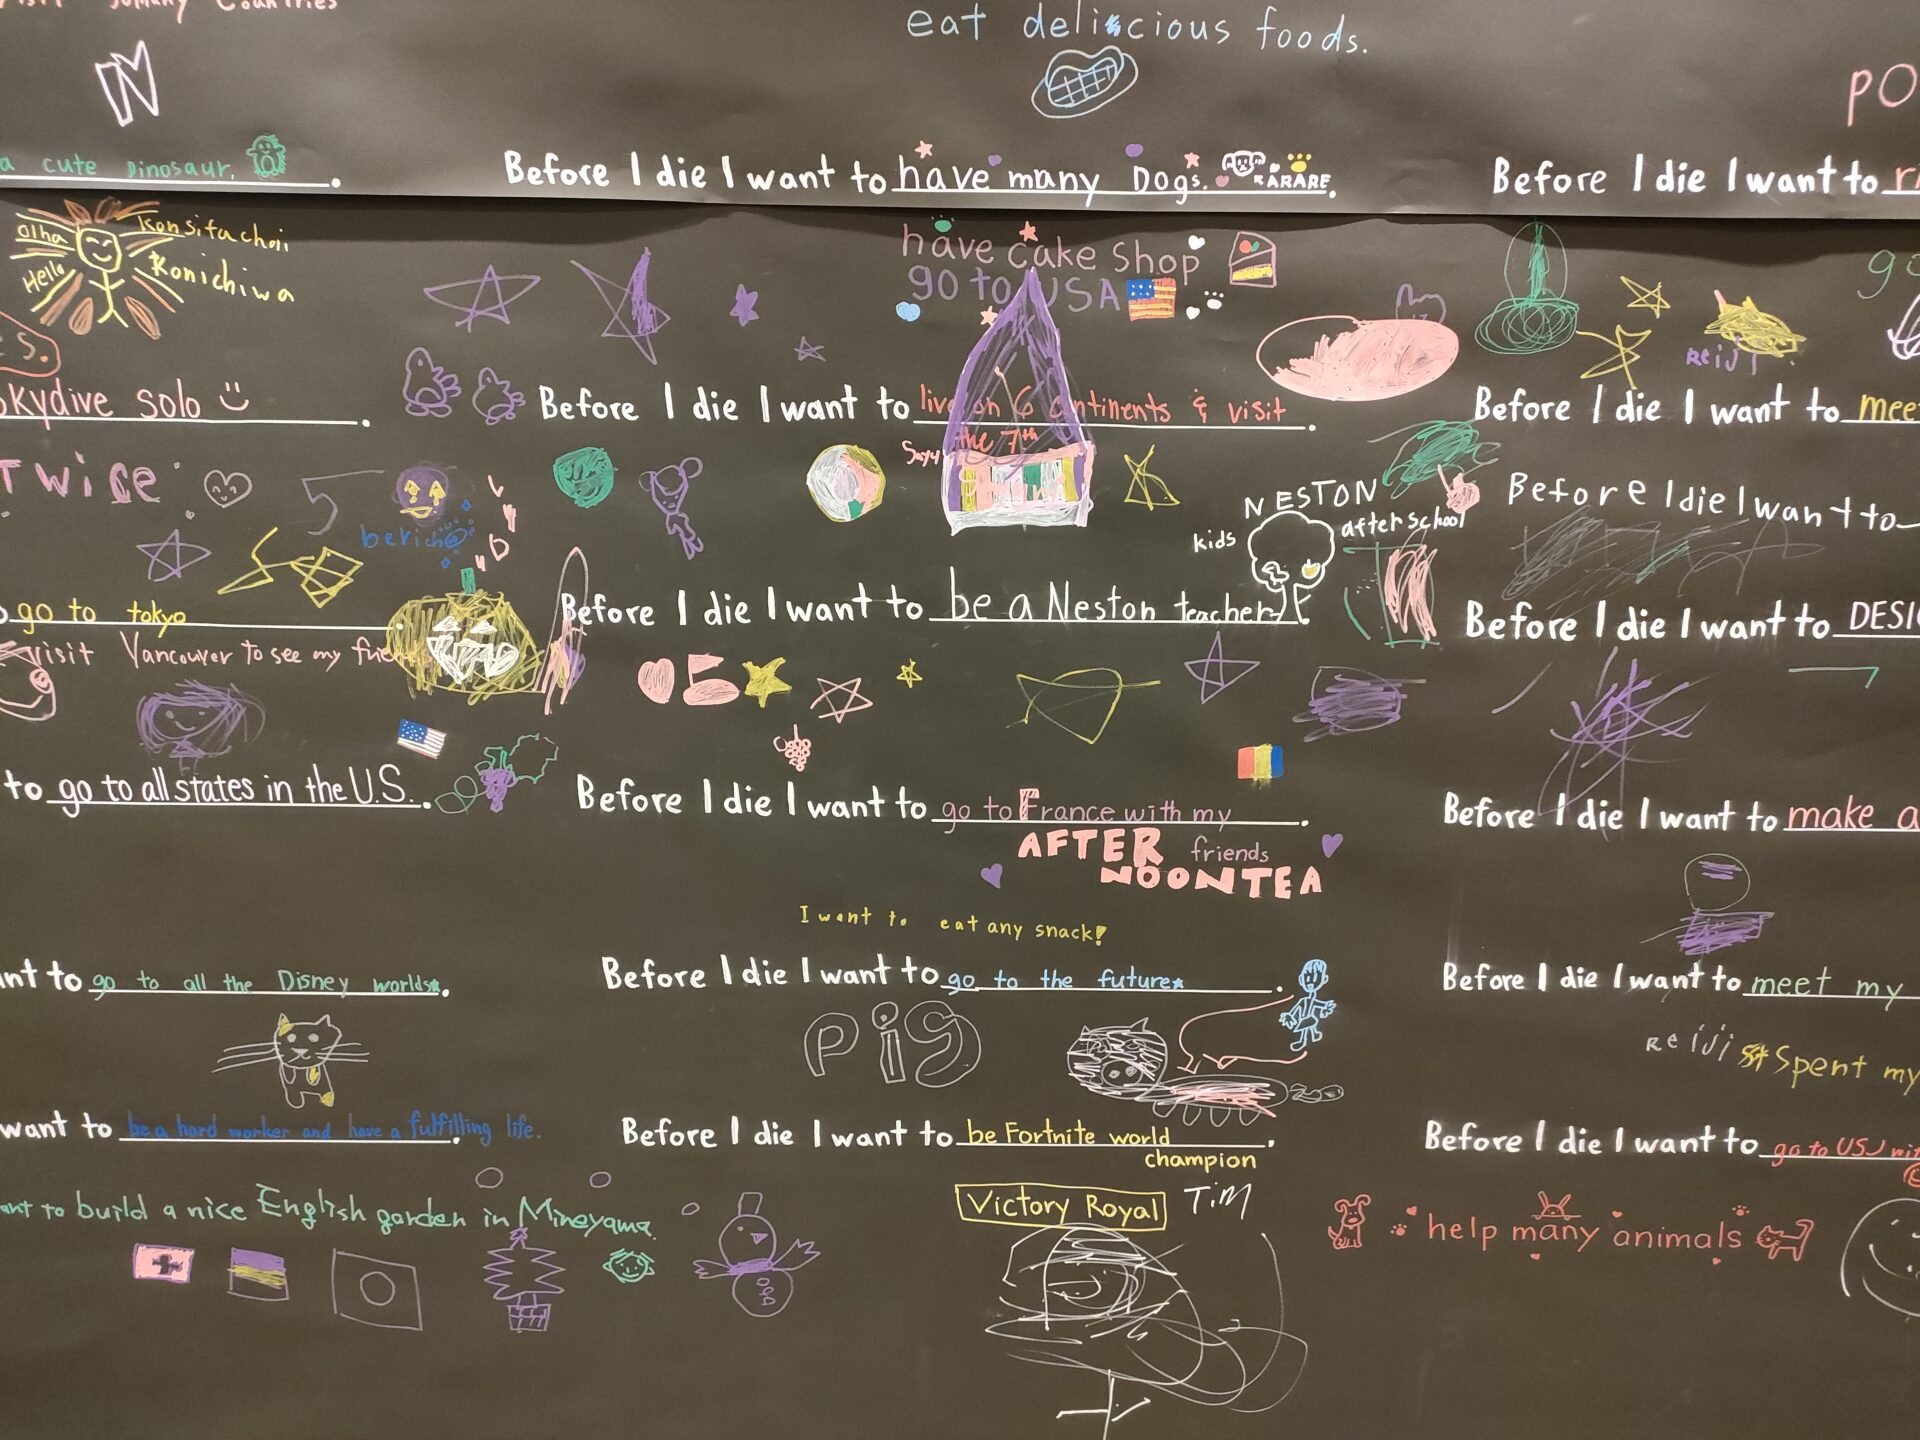 visit so many countries
eat delicious foods.
N
PO
a cute Dinosaur.
Before I die I want to have many Dogs. ARARE
Before I die I want to
olha
Konsitachoi
Hello
Konichiwa
have cake shop
go to USA
go
s.
Reiji
skydive solo
Before I die I want to live on 6 continents & visit
the 7th
Before I die I want to meet
TWICE
5
NESTON
kids
after school
Before I die I want to
go to tokyo
Before I die I want to be a Neston teacher
Before I die I want to DESIG
visit Vancouver to see my friends
5
to go to all states in the U.S.
Before I die I want to go to France with my
friends
Before I die I want to make a
AFTER
NOONTEA
I want to eat any snack!
want to go to all the Disney worlds.
Before I die I want to go to the future
Before I die I want to meet my
pig
Reiji
Spent my
want to be a hard worker and have a fulfilling life.
Before I die I want to be Fortnite world
champion
Before I die I want to go to USJ wit
want to build a nice English garden in Mineyama.
Victory Royal
Tim
help many animals